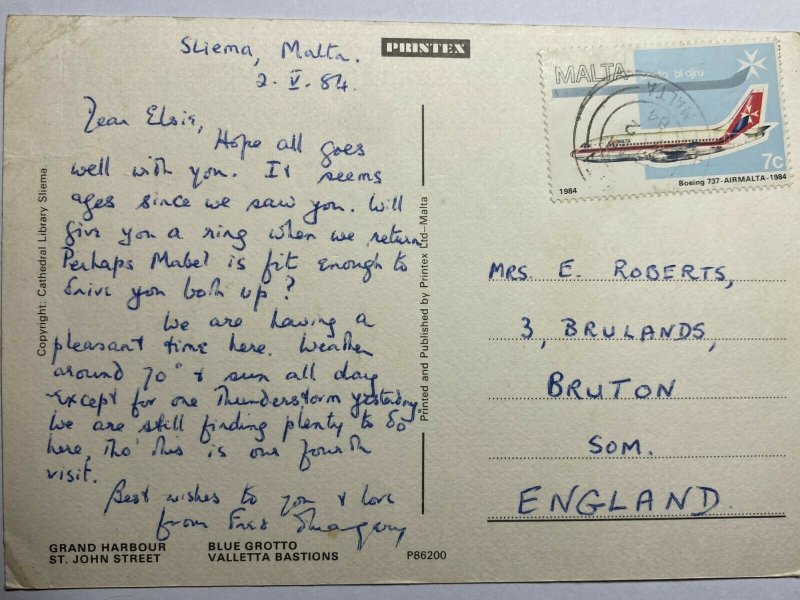 PRINTEX
Sliema, Malta.
2. V. 84.
Dear Elsie,
Hope all goes
well with you. It seems
ages since we saw you. Will
give you a ring when we return.
Perhaps Mabel is fit enough to
drive you both up?
We are having a
pleasant time here. Weather
around 70° & sun all day
except for one thunderstorm yesterday.
We are still finding plenty to do
here, tho' this is our fourth
visit.
Best wishes to you & love
from
GRAND HARBOUR BLUE GROTTO
ST. JOHN STREET VALLETTA BASTIONS
P86200
Copyright: Cathedral Library Sliema.
Printed and Published by Printex Ltd–Malta
MALTA
7c
1984 Boeing 737-AIRMALTA-1984
MALTA
84
2
MRS. E. ROBERTS,
3, BRULANDS,
BRUTON
SOM.
ENGLAND.